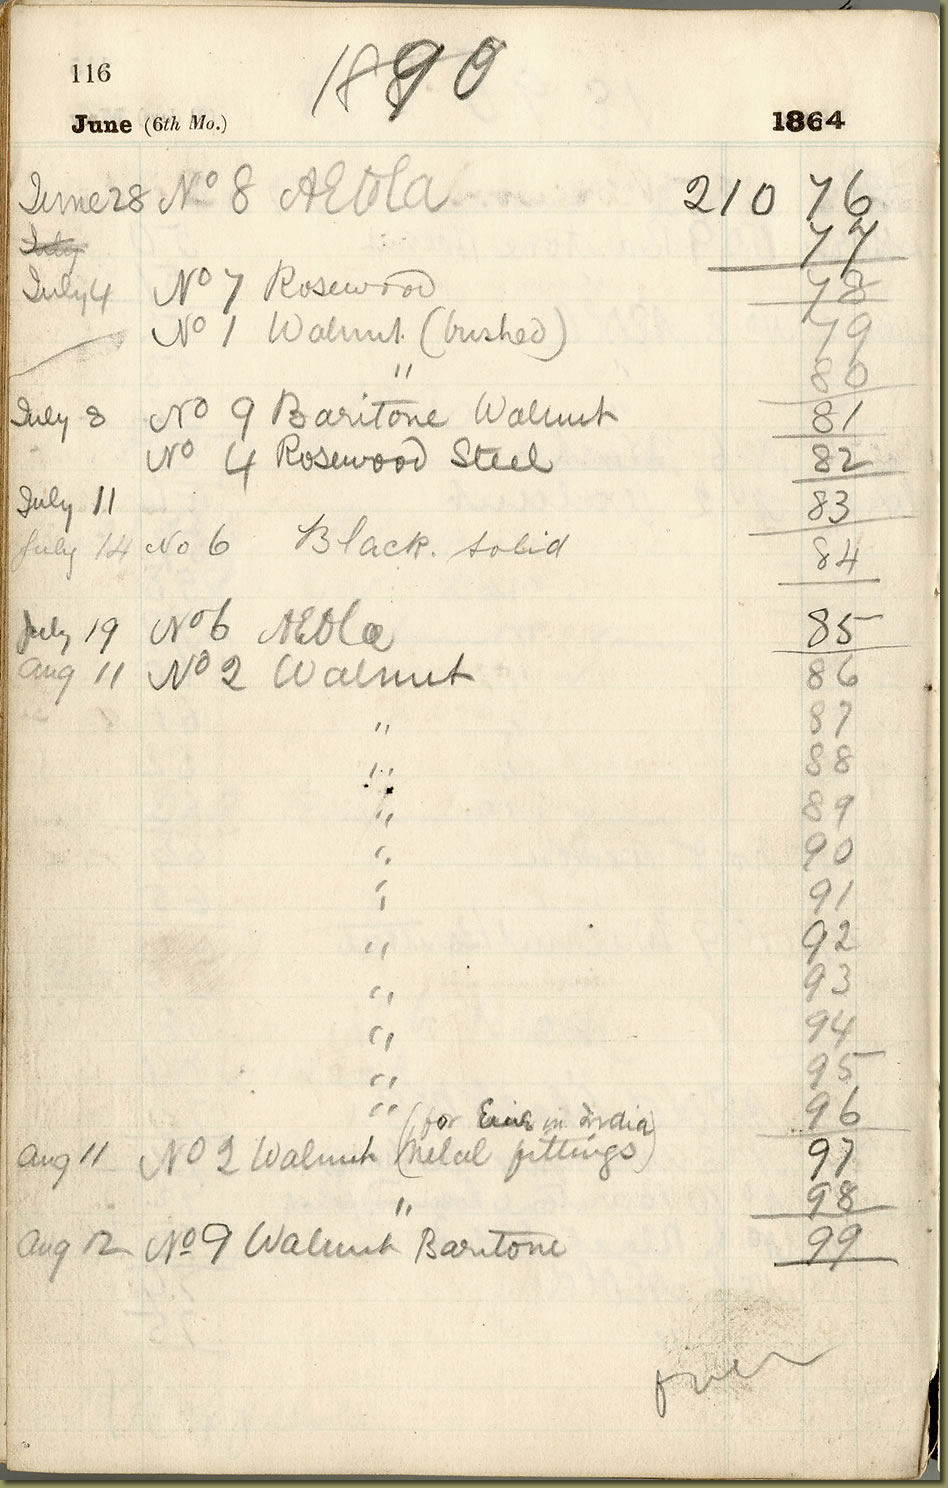 116
1890
June (6th Mo.) 1864
June 28 No 8 AEola 210 76
July 77
July 4 No 7 Rosewood 78
No 1 Walnut (bushed) 79
" 80
July 8 No 9 Baritone Walnut 81
No 4 Rosewood Steel 82
July 11 83
July 14 No 6 Black. solid 84
July 19 No 6 AEola 85
Aug 11 No 2 Walnut 86
" 87
" 88
" 89
" 90
" 91
" 92
" 93
" 94
" 95
" 96
(for in India)
Aug 11 No 2 Walnut (Metal fittings) 97
" 98
Aug 12 No 9 Walnut Baritone 99
over